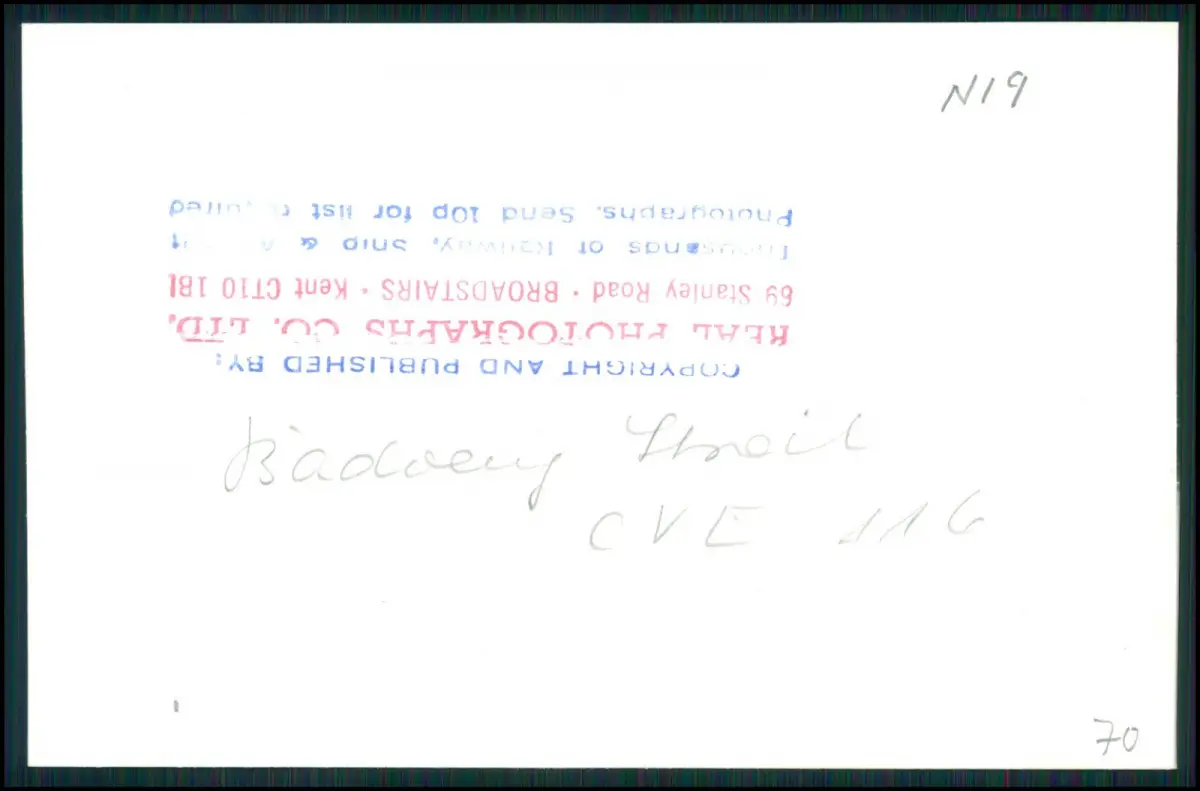 N19
COPYRIGHT AND PUBLISHED BY:
REAL PHOTOGRAPHS CO. LTD.
69 Stanley Road · BROADSTAIRS · Kent CT10 1B
Thousands of Railway, Ship &
Photographs. Send 10p for list required
Badoeng Strait
CVE 116
70